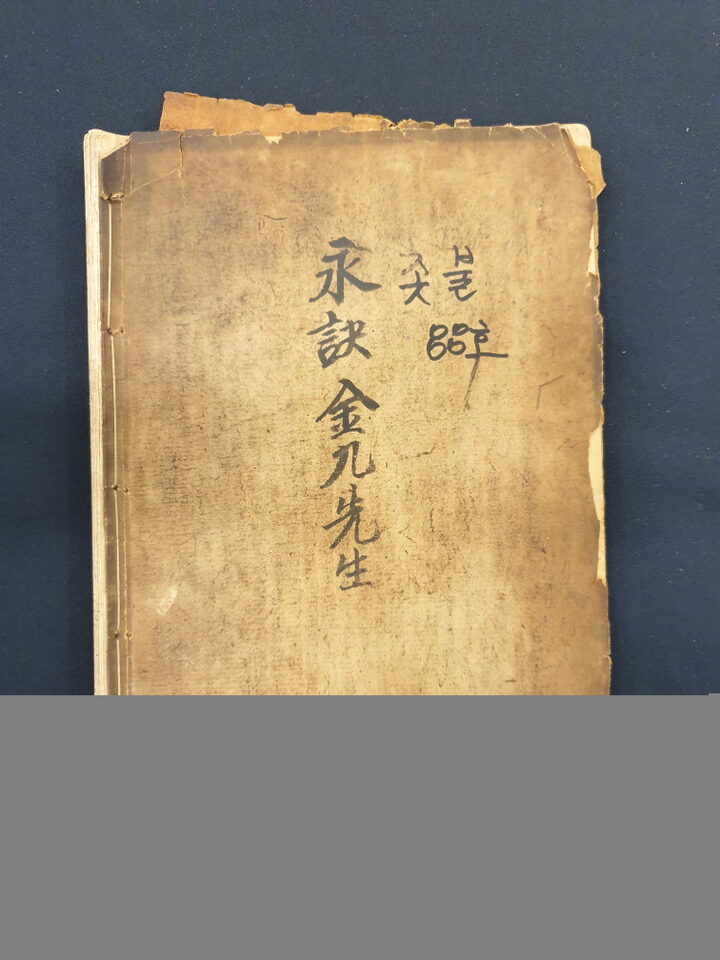 촛불
88호
永訣 金九先生